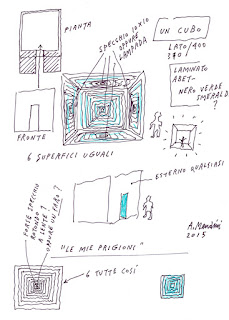 PIANTA
SPECCHIO 10X10
OPPURE
LAMPADA
UN CUBO
LATO/400
LAMINATO
ABET-
NERO VERDE
SMERALD
?
FRONTE
6 SUPERFICI UGUALI
ESTERNO QUALSIASI
FORSE SPECCHIO
ROTONDO
A LENTE?
OPPURE UN FORO?
A. Mendini
2015
"LE MIE PRIGIONI"
6 TUTTE COSÍ